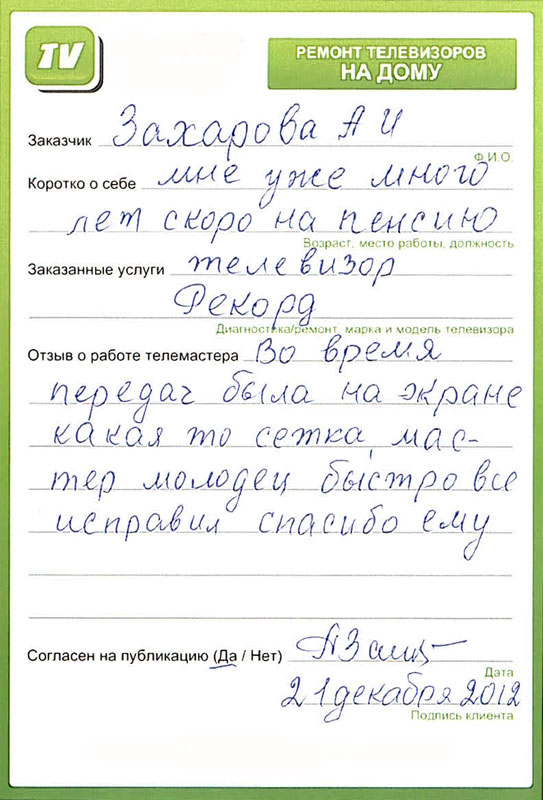 TV
РЕМОНТ ТЕЛЕВИЗОРОВ
НА ДОМУ
Заказчик Захарова А И
Ф.И.О.
Коротко о себе мне уже много
лет скоро на пенсию
Возраст, место работы, должность
Заказанные услуги телевизор
Рекорд
Диагностика/ремонт, марка и модель телевизора
Отзыв о работе телемастера Во время
передач была на экране
какая то сетка, мас-
тер молодец быстро все
исправил спасибо ему
Согласен на публикацию (Да / Нет)
Дата
21 декабря 2012
Подпись клиента